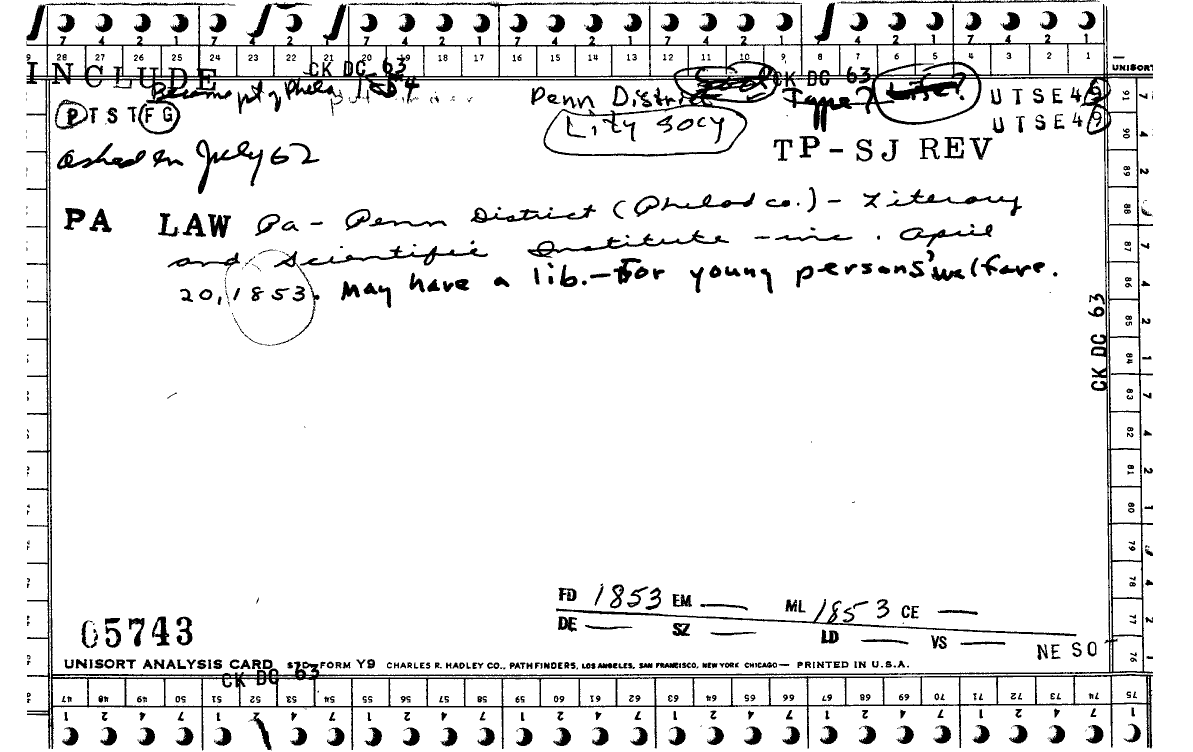 7 4 2 1 7 4 2 1 7 4 2 1 7 4 2 1 7 4 2 1 7 4 2 1 7 4 2 1
28 27 26 25 24 23 22 21 20 19 18 17 16 15 14 13 12 11 10 9 8 7 6 5 4 3 2 1
UNISORT
INCLUDE CK DC 63 CK DC 63
Became pt of Phila 1854 Penn District Type? UTSE49
PTSTFG Lity Socy UTSE49
Asked in July 62 TP-SJ REV
PA LAW Pa - Penn District (Philad co.) - Literary
and Scientific Institute - inc. April
20, 1853. May have a lib. - For young persons' welfare.
91 90 89 88 87 86 85 84 83 82 81 80 79 78 77 76
CK DC 63
FD 1853 EM — ML 1853 CE —
DE — SZ — LD — VS —
NE SO
05743
UNISORT ANALYSIS CARD FORM Y9 CHARLES R. HADLEY CO., PATHFINDERS, LOS ANGELES, SAN FRANCISCO, NEW YORK CHICAGO— PRINTED IN U.S.A.
CK DC 63
47 48 49 50 51 52 53 54 55 56 57 58 59 60 61 62 63 64 65 66 67 68 69 70 71 72 73 74 75
1 2 4 7 1 2 4 7 1 2 4 7 1 2 4 7 1 2 4 7 1 2 4 7 1 2 4 7 1